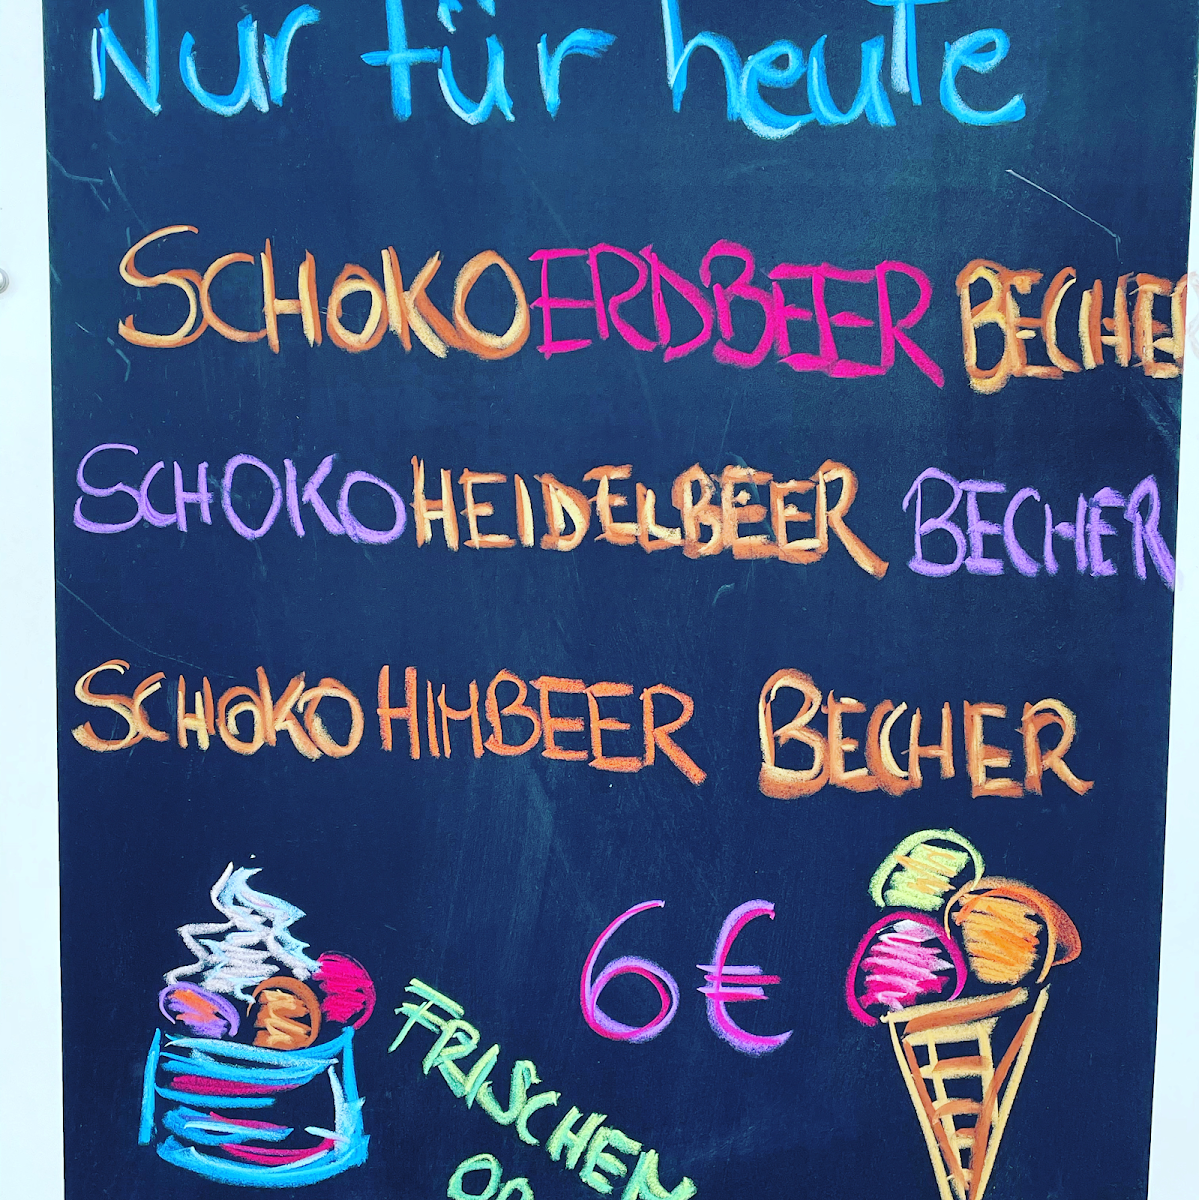 Nur für heute
SCHOKOERDBEER BECHER
SCHOKOHEIDELBEER BECHER
SCHOKO HIMBEER BECHER
6€
FRISCHEN